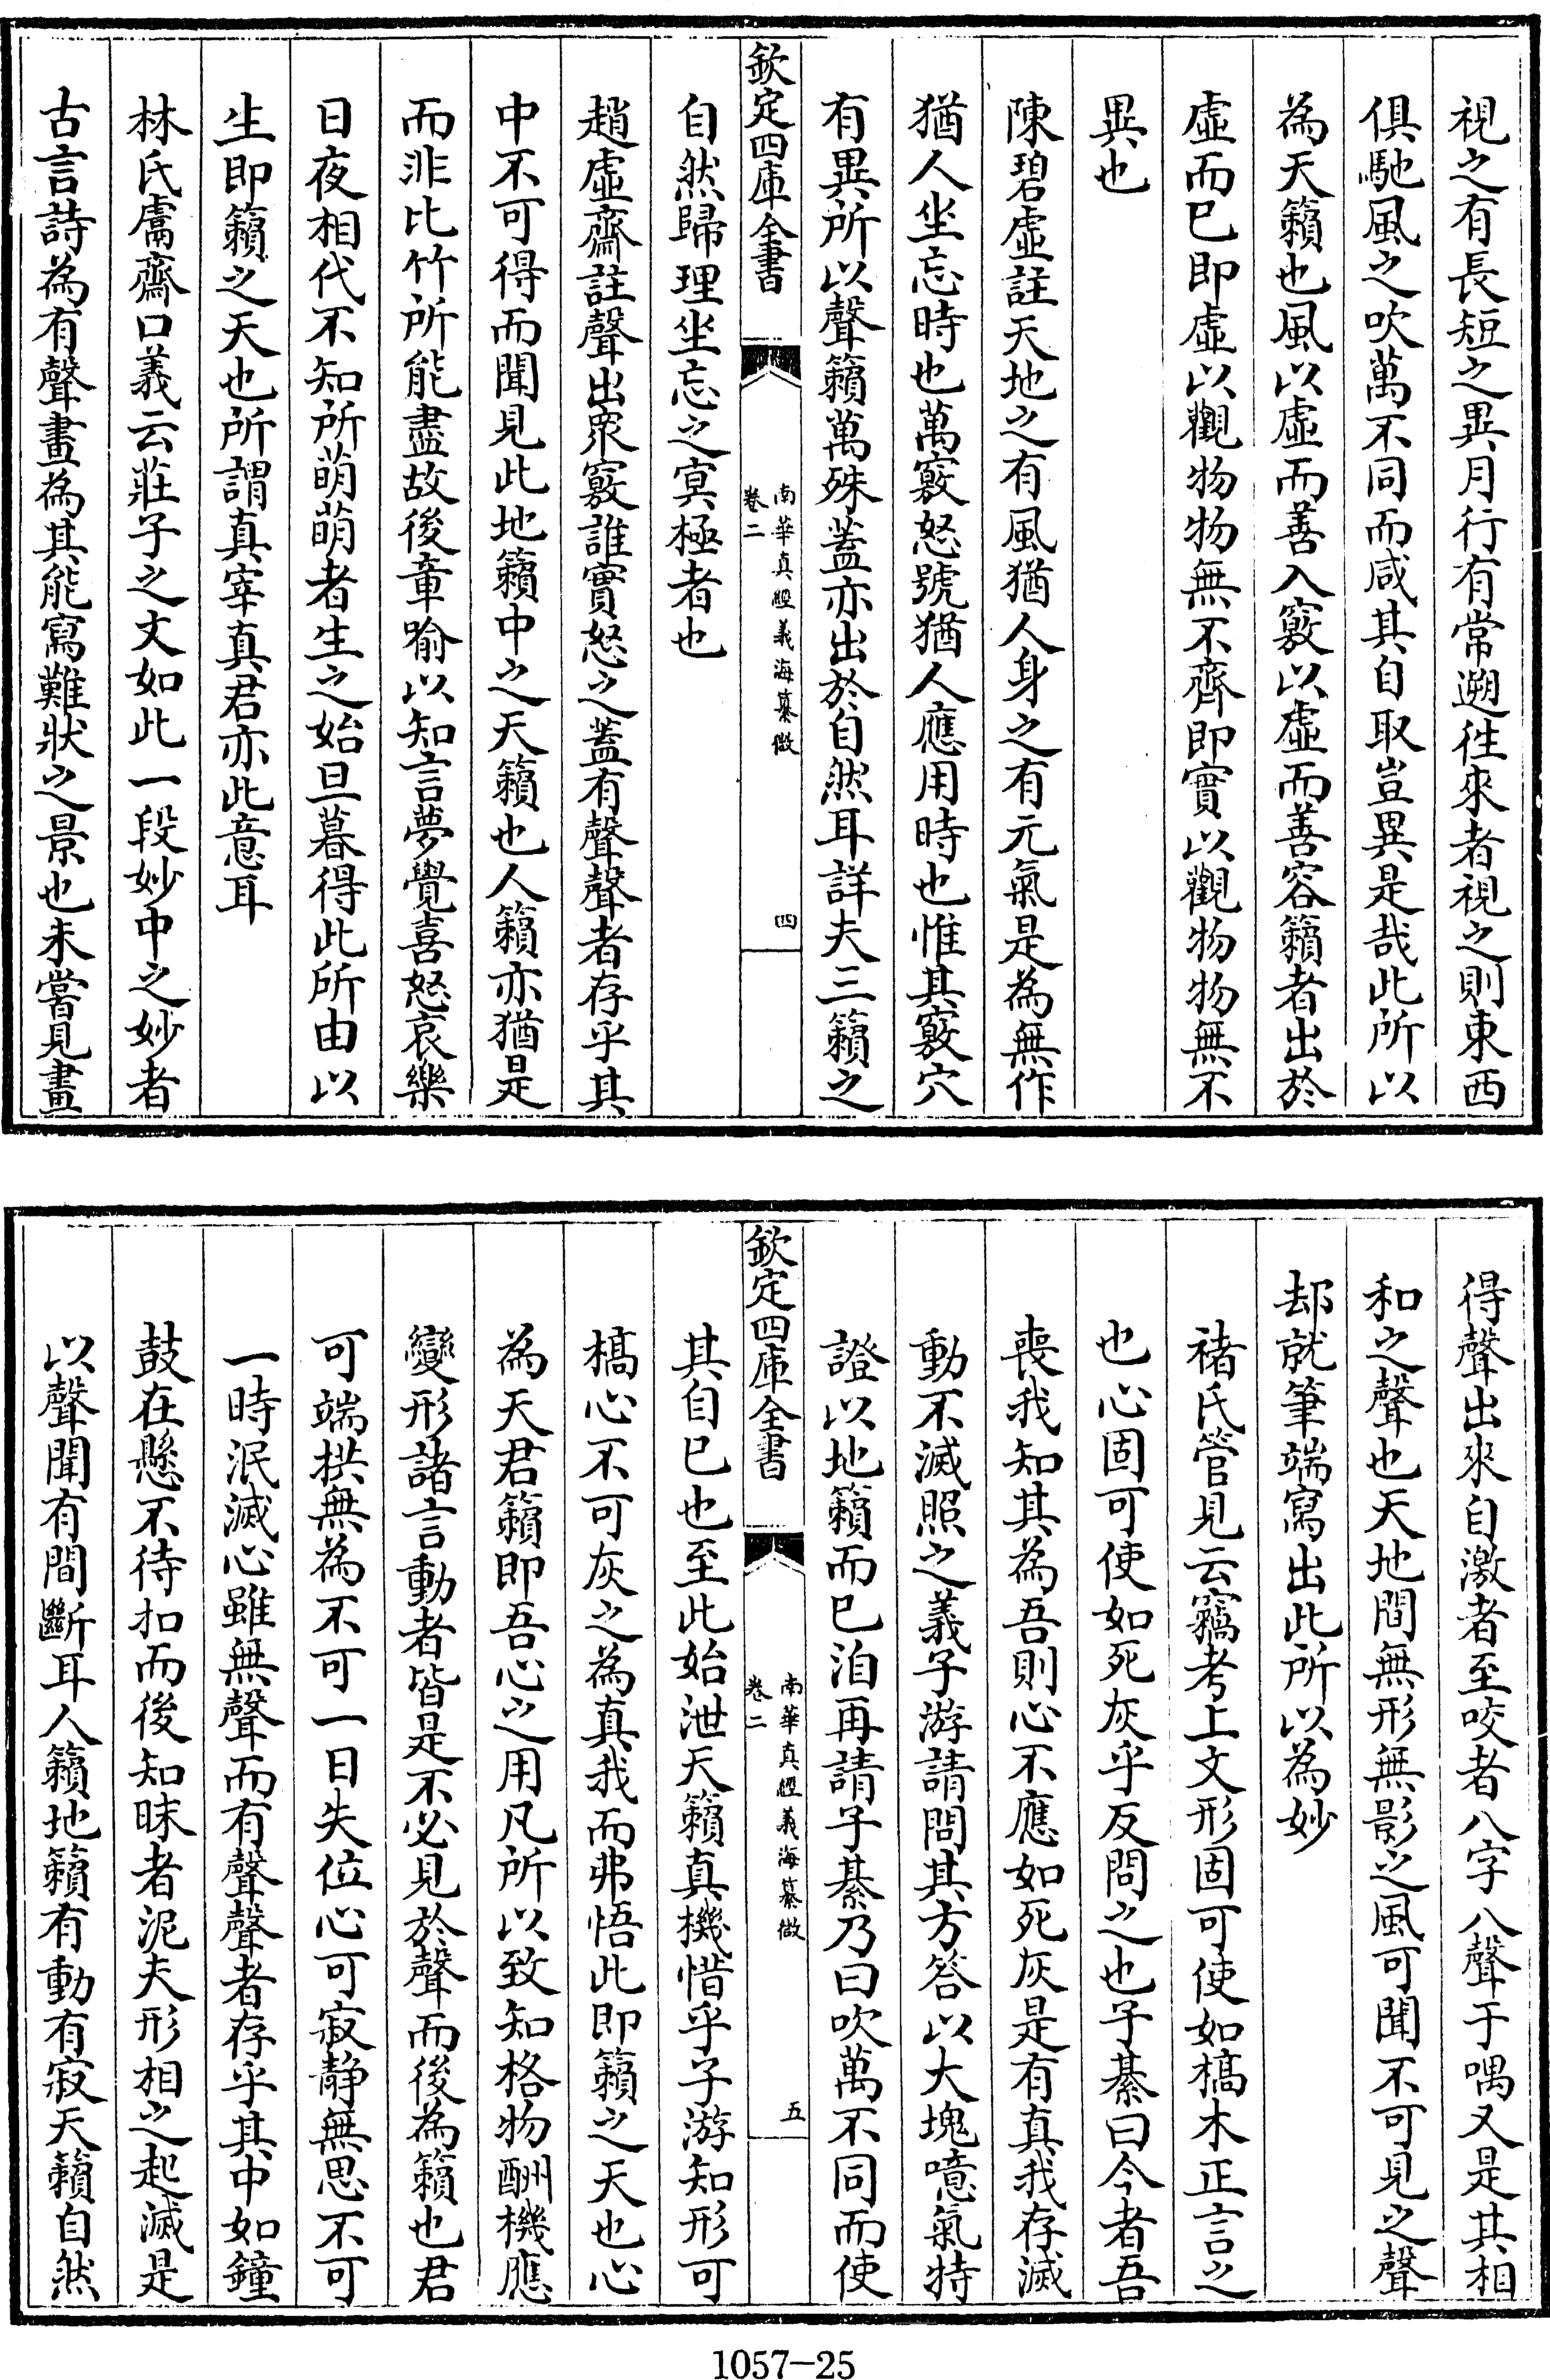 視之有長短之異月行有常遡往來者視之則東西
俱馳風之吹萬不同而咸其自取豈異是哉此所以
為天籟也風以虛而善入竅以虛而善容籟者出於
虛而已即虛以觀物物無不齊即實以觀物物無不
異也
陳碧虛註天地之有風猶人身之有元氣是為無作
猶人坐忘時也萬竅怒號猶人應用時也惟其竅穴
有異所以聲籟萬殊蓋亦出於自然耳詳夫三籟之
欽定四庫全書
南華真經義海纂微
卷二
四
自然歸理坐忘之㝠極者也
趙虛齋註聲出衆竅誰實怒之蓋有聲聲者存乎其
中不可得而聞見此地籟中之天籟也人籟亦猶是
而非比竹所能盡故後章喻以知言夢覺喜怒哀樂
日夜相代不知所萌萌者生之始旦暮得此所由以
生即籟之天也所謂真宰真君亦此意耳
林氏鬳齋口義云莊子之文如此一段妙中之妙者
古言詩為有聲畫為其能寫難狀之景也未嘗見畫
得聲出來自激者至咬者八字八聲于喁又是其相
和之聲也天地間無形無影之風可聞不可見之聲
却就筆端寫出此所以為妙
褚氏管見云竊考上文形固可使如槁木正言之
也心固可使如死灰乎反問之也子綦曰今者吾
喪我知其為吾則心不應如死灰是有真我存滅
動不滅照之義子游請問其方答以大塊噫氣特
證以地籟而已洎再請子綦乃曰吹萬不同而使
欽定四庫全書
南華真經義海纂微
卷二
五
其自已也至此始泄天籟真機惜乎子游知形可
槁心不可灰之為真我而弗悟此即籟之天也心
為天君籟即吾心之用凡所以致知格物酬機應
變形諸言動者皆是不必見於聲而後為籟也君
可端拱無為不可一日失位心可寂静無思不可
一時泯滅心雖無聲而有聲聲者存乎其中如鐘
鼓在懸不待扣而後知昧者泥夫形相之起滅是
以聲聞有間斷耳人籟地籟有動有寂天籟自然
1057-25